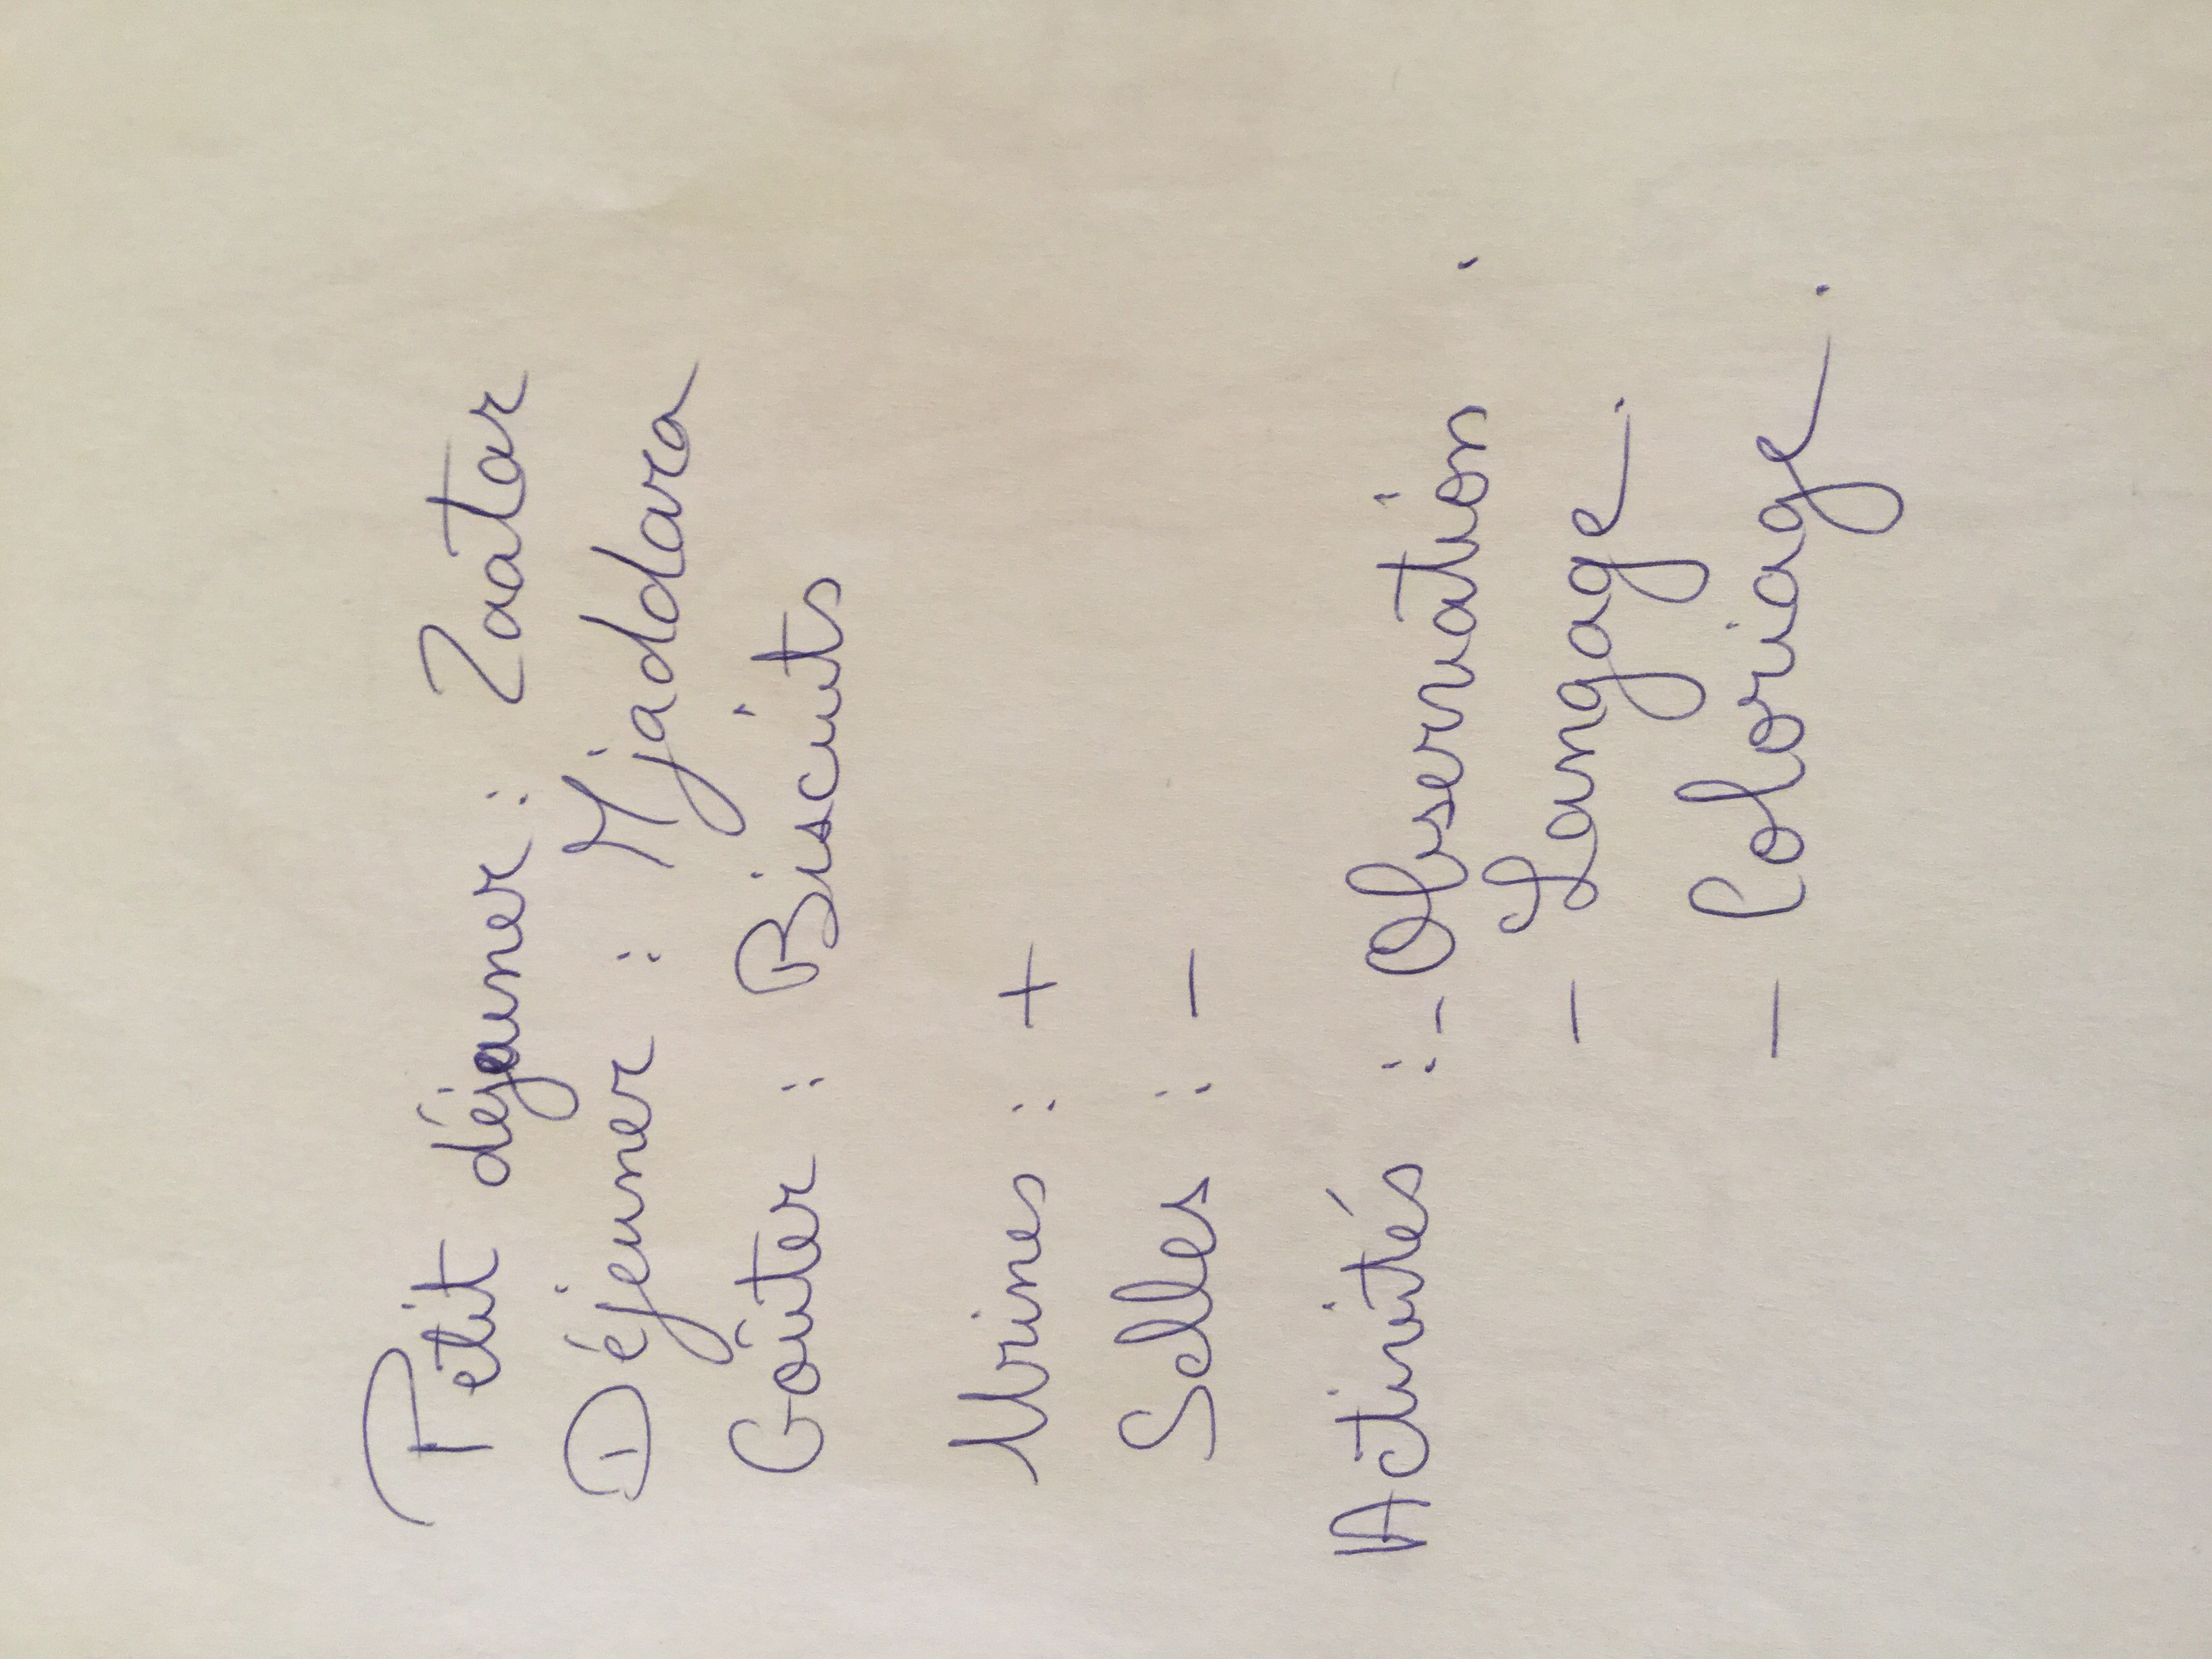 Petit déjeuner : Zaatar
Déjeuner : Mjaddara
Goûter : Biscuits
Urines : +
Selles : -
Activités : - Observation .
- Langage .
- Coloriage .